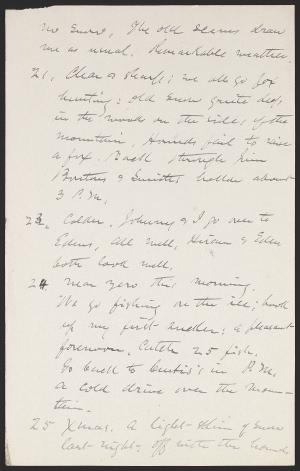 no snow, The old scenes draw
me as usual. Remarkable weather.
21, Clear & sharp; we all go fox
hunting; old snow quite deep
in the woods on the side of the
mountain, Hounds fail to rise
a fox. Back through Jim
Boutons & Smiths hollow about
3 P.M.
23. Colder. Johnny & I go over to
Edens, all well, Hiram & Eden
both look well,
24. near zero this morning.
We go fishing on the ice; hook
up my first another; a pleasant
forenoon. Catch 25 fish.
Go back to Curtis's in P.M.
A cold drive over the moun-
tain.
25 Xmas. A light skim of snow
last night, off with the hounds